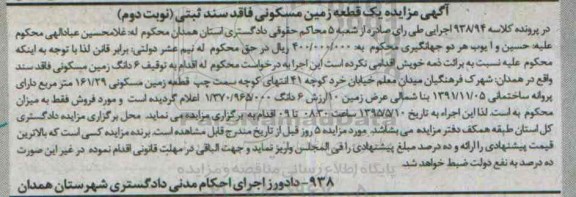 آگهی مزایده یک قطعه زمین مسکونی فاقد سند ثبتی (نوبت دوم)
در پرونده کلاسه ۹۳۸/۹۴ اجرایی طی رای صادره از شعبه ۵ محاکم حقوقی دادگستری استان همدان محکوم له: غلامحسین عبادالهی محکوم
علیه: حسین و ایوب هر دو جهانگیری محکوم به: ۴۰۰/۰۰۰/۰۰۰ ریال در حق محکوم له نیم عشر دولتی: برابر قانون لذا با توجه به اینکه
محکوم علیه نسبت به برائت ذمه خویش اقدامی نکرده است این اجرا به درخواست محکوم له اقدام به توقیف ۶ دانگ زمین مسکونی فاقد سند
واقع در همدان: شهرک فرهنگیان میدان معلم خیابان خرد کوچه ۴۱ انتهای کوچه سمت چپ قطعه زمین مسکونی ۱۶۱/۲۹ متر مربع دارای
پروانه ساختمانی ۱۳۹۱/۱۱/۰۵ بنا شمالی عرض زمین ۱۰ ارزش ۶ دانگ ۱/۳۷۰/۹۶۵/۰۰۰ اعلام گردیده است و مورد فروش فقط به میزان
محکوم به است. لذا این اجراء به تاریخ ۱۳۹۵/۵/۱۰ ساعت ۰۸:۳۰ تا ۰۹ اقدام به برگزاری مزایده می نماید. محل برگزاری مزایده دادگستری
کل استان طبقه همکف دفتر مزایده می باشد. مورد مزایده ۵ روز قبل از تاریخ مندرج قابل مشاهده است. برنده مزایده کسی است که بالاترین
قیمت پیشنهادی را ارائه و ده درصد مبلغ پیشنهادی را فی المجلس واریز نماید و جهت الباقی در مهلت قانونی اقدام نموده در غیر این صورت
ده درصد به نفع دولت ضبط خواهد شد.
پایگاه اطلاع رسانی مناقصه و مزایده
۹۳۸- دادورز اجرای احکام مدنی دادگستری شهرستان همدان